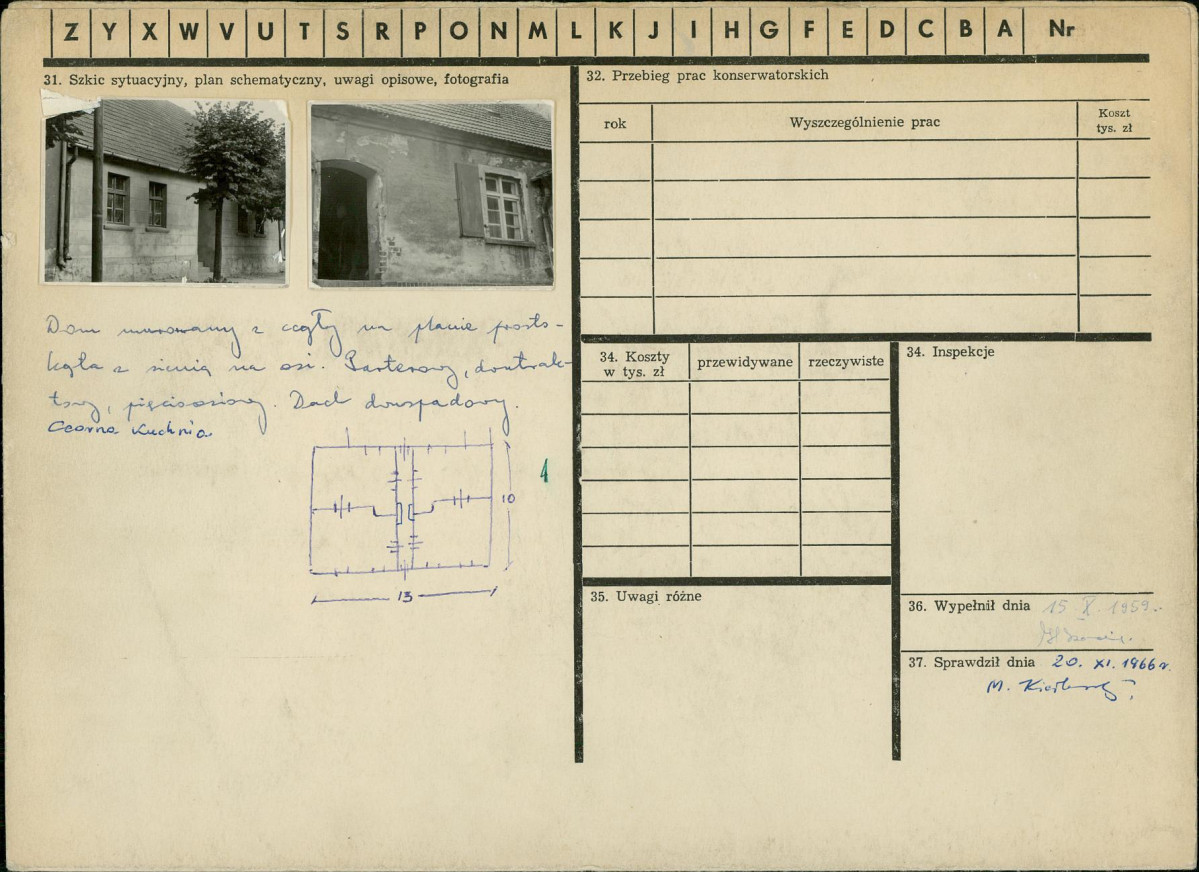 Z Y X W V U T S R P O N M L K J I H G F E D C B A Nr
31. Szkic sytuacyjny, plan schematyczny, uwagi opisowe, fotografia
Dom murowany z cegły na planie prosto-
kąta z sienią na osi. Parterowy, dwutrak-
towy, pięcioosiowy. Dach dwuspadowy.
Czarna Kuchnia
10
13
4
32. Przebieg prac konserwatorskich
rok
Wyszczególnienie prac
Koszt
tys. zł
34. Koszty
w tys. zł
przewidywane
rzeczywiste
34. Inspekcje
35. Uwagi różne
36. Wypełnił dnia 15 X. 1959.
37. Sprawdził dnia 20. XI. 1966 r.
M.